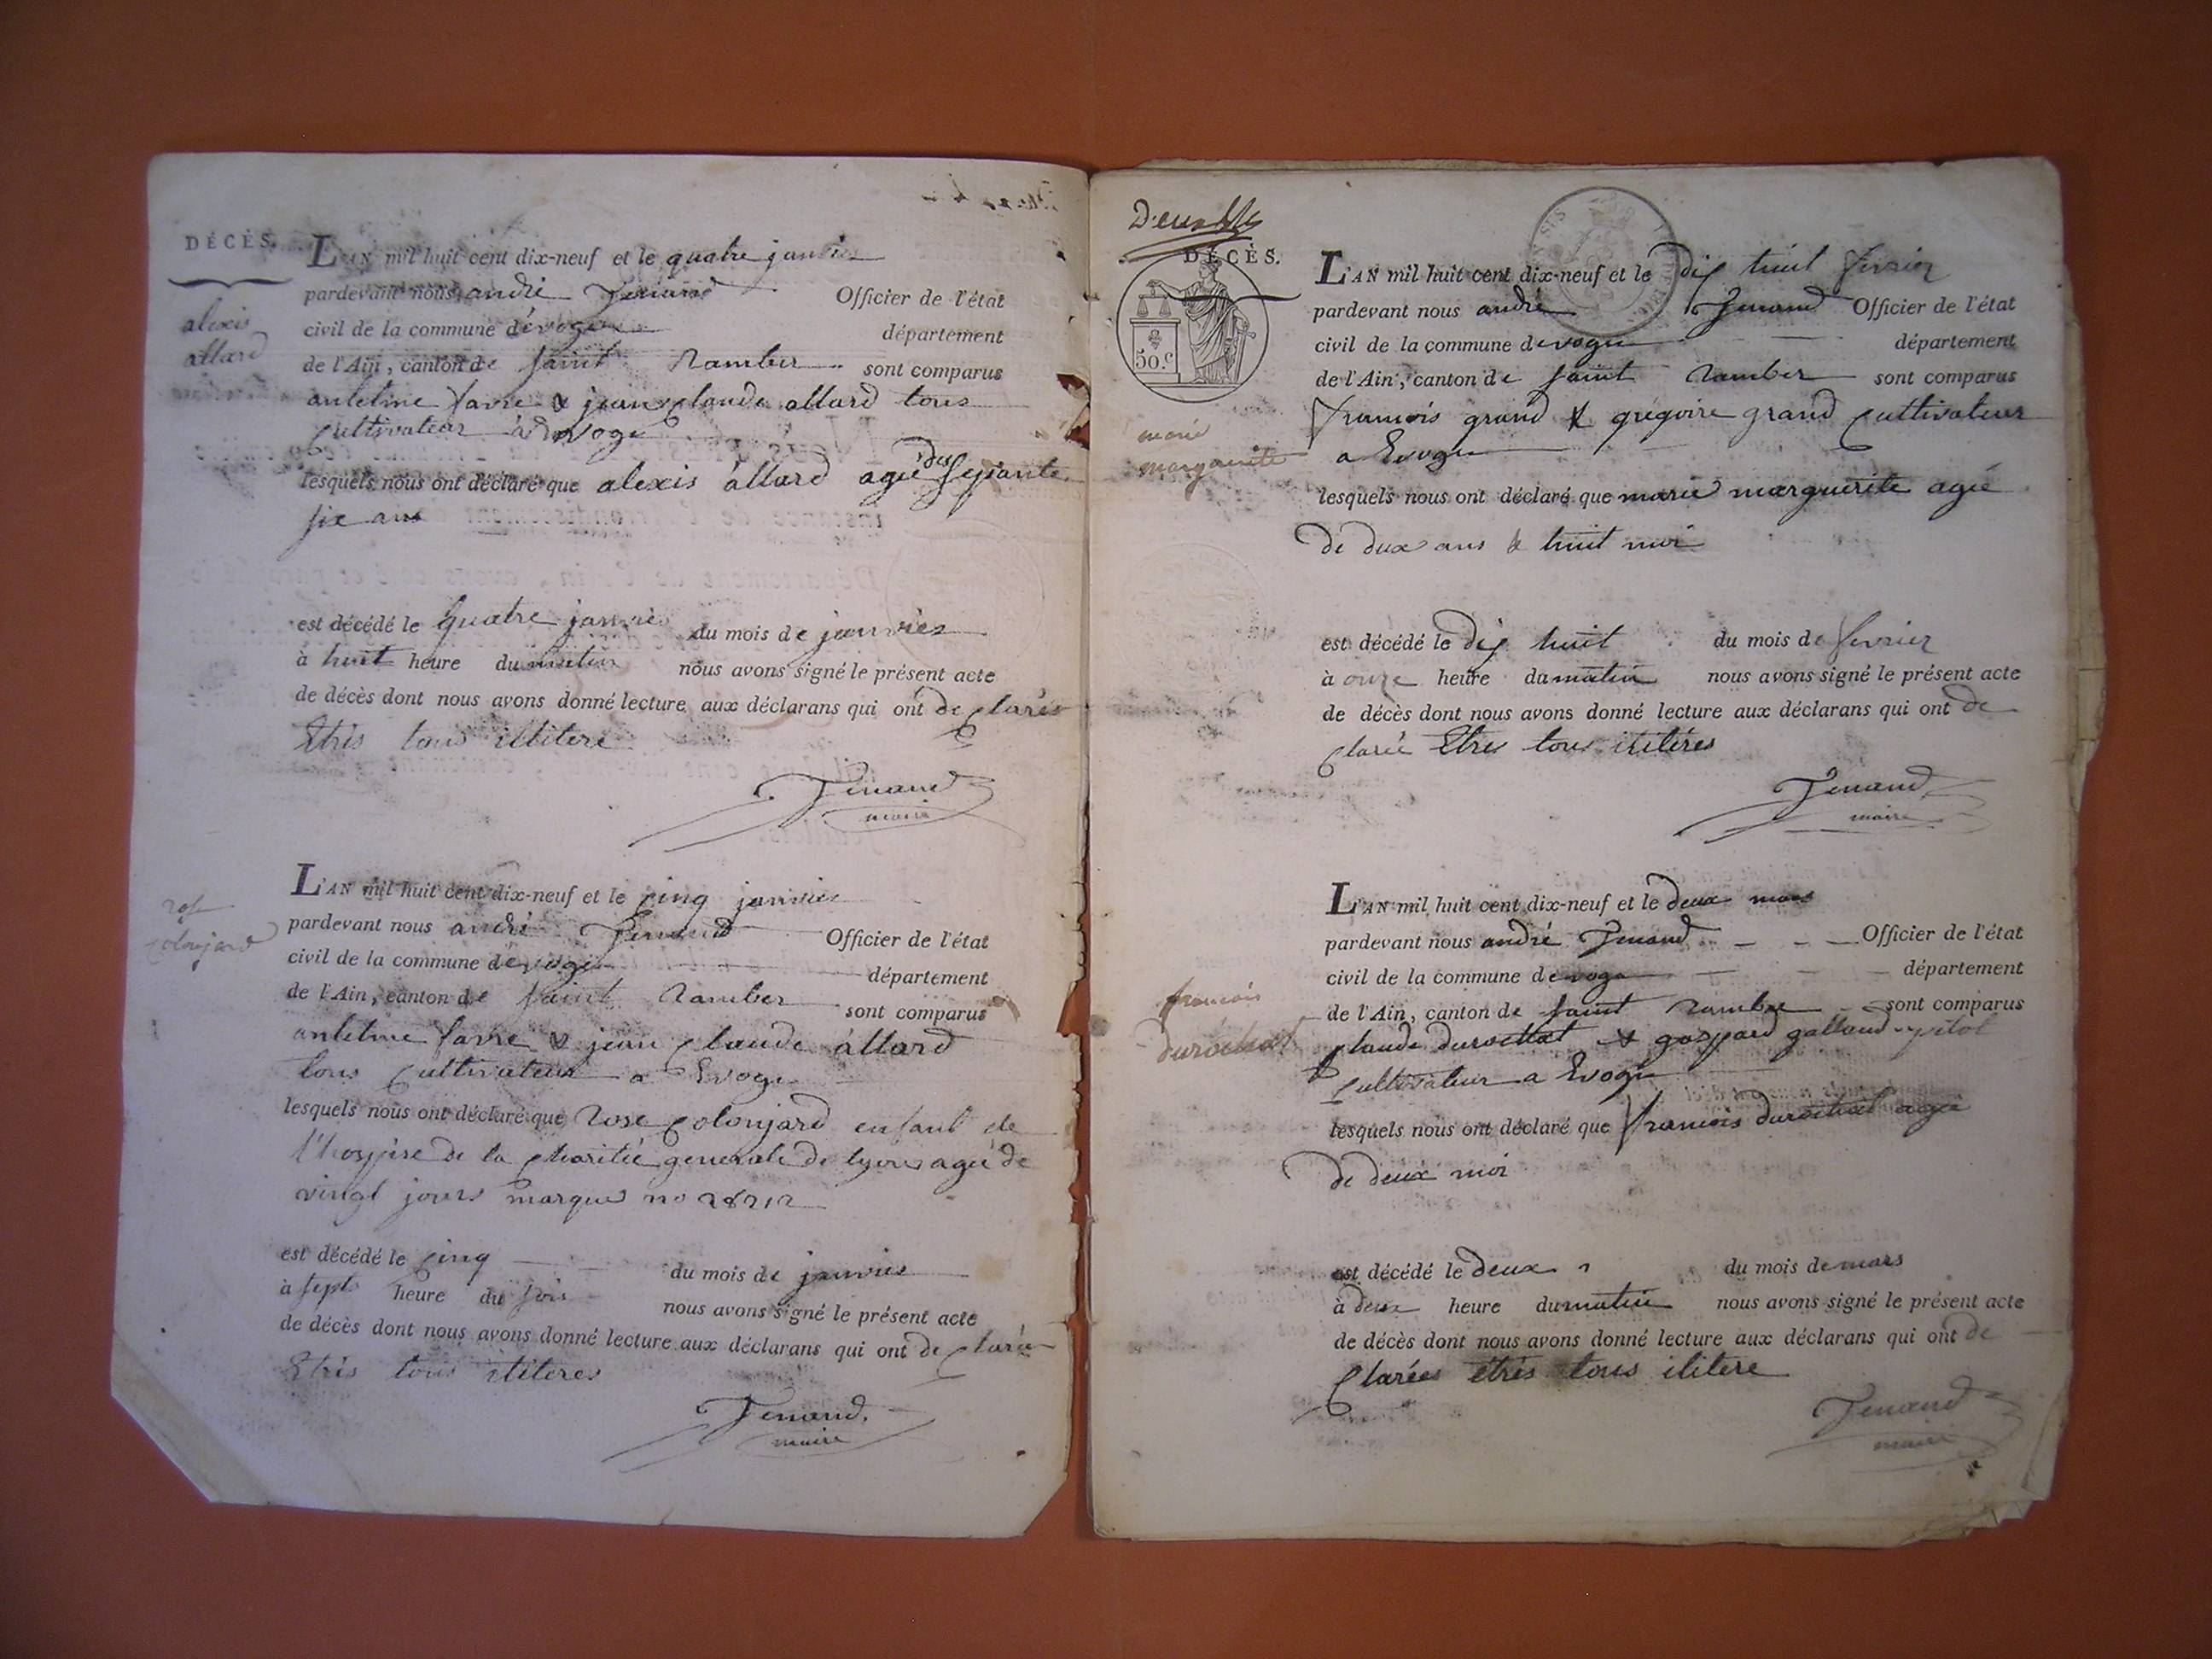 DÉCÈS.
alexis
allard
L'AN mil huit cent dix-neuf et le quatre janvier
pardevant nous andré Jenand Officier de l'état
civil de la commune d'évoge département
de l'Ain, canton de saint Ramber sont comparus
antelme favre & jean claude allard tous
cultivateur a Evoge
lesquels nous ont déclaré que alexis allard agée de sepiante
six ans
est décédé le quatre janvier du mois de janvier
à huit heure du matin nous avons signé le présent acte
de décès dont nous avons donné lecture aux déclarans qui ont de clarés
Etrés tous illitere
Jenand
maire
rose
colonjard
L'AN mil huit cent dix-neuf et le cinq janvier
pardevant nous andré Jenand Officier de l'état
civil de la commune d'évoge département
de l'Ain, canton de saint Ramber sont comparus
antelme favre & jean claude allard
tous cultivateur a Evoge
lesquels nous ont déclaré que Rose colonjard enfant de
l'hospise de la charitée generale de lyon agée de
vingt jours marques no 28212
est décédé le cinq du mois de janvier
à sept heure du soir nous avons signé le présent acte
de décès dont nous avons donné lecture aux déclarans qui ont de clarée
Etrés tous ilitéres
Jenand.
maire
DÉCÈS.
50.c
marie
marguerite
L'AN mil huit cent dix-neuf et le dix huit fevrier
pardevant nous andré Jenand Officier de l'état
civil de la commune devoge département
de l'Ain, canton de saint Ramber sont comparus
francois grand & grégoire grand cultivateur
a Evoge
lesquels nous ont déclaré que marie marguerite agée
de deux ans & huit moi
est décédé le dix huit du mois de fevrier
à onze heure du matin nous avons signé le présent acte
de décès dont nous avons donné lecture aux déclarans qui ont de
clarée Etres tous ilitéres
Jenand
maire
francois
durochat
L'AN mil huit cent dix-neuf et le deux mars
pardevant nous andré Jenand Officier de l'état
civil de la commune devoge département
de l'Ain, canton de saint Ramber sont comparus
claude durochat & gaspard galland pitol
cultivateur a Evoge
lesquels nous ont déclaré que francois durochat agé
de deux moi
est décédé le deux du mois de mars
à deux heure du matin nous avons signé le présent acte
de décès dont nous avons donné lecture aux déclarans qui ont de
clarées étrés tous ilitere
Jenand
maire